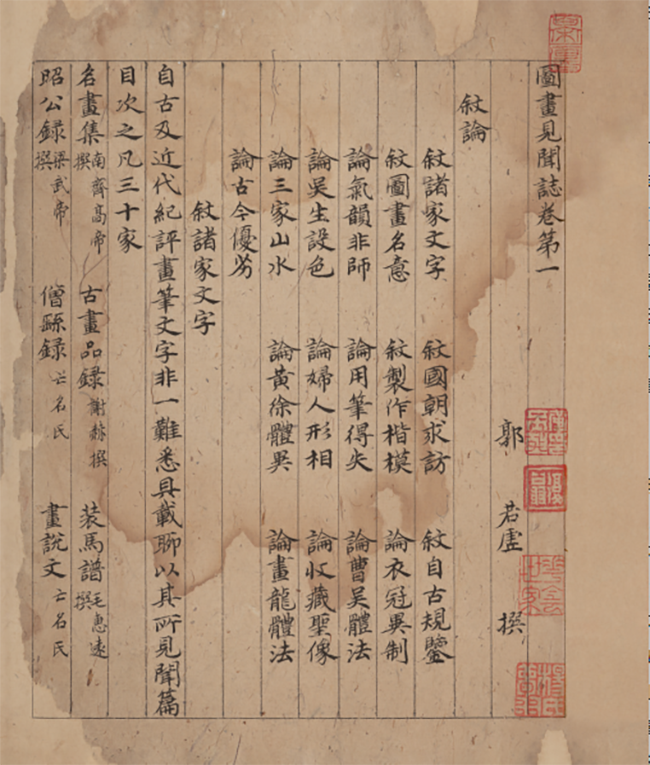 圖畫見聞誌卷第一
郭若虛撰
敘論
敘諸家文字 敘國朝求訪 敘自古規鑒
敘圖畫名意 敘製作楷模 論衣冠異制
論氣韻非師 論用筆得失 論曹吳體法
論吳生設色 論婦人形相 論收藏聖像
論三家山水 論黃徐體異 論畫龍體法
論古今優劣
敘諸家文字
自古及近代紀評畫筆文字非一難悉具載聊以其所見聞篇
目次之凡三十家
名畫集南齊高帝撰 古畫品錄謝赫撰 裝馬譜毛惠遠撰
昭公錄梁武帝撰 僧繇錄亡名氏 畫說文亡名氏